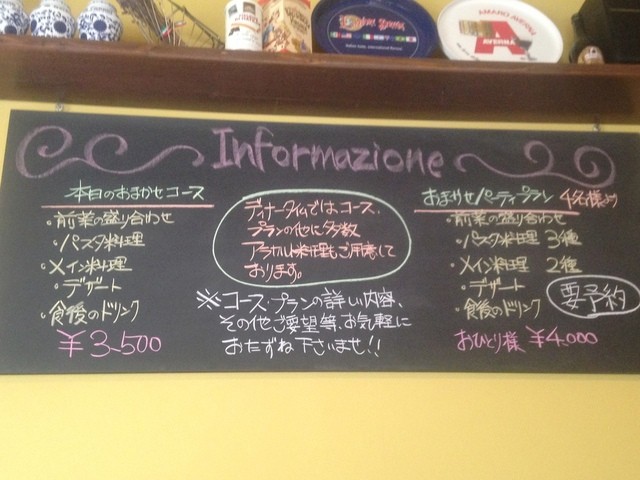 Informazione
本日のおまかせコース
・前菜の盛り合わせ
・パスタ料理
・メイン料理
・デザート
・食後のドリンク
¥3-500
ディナータイムではコース、
プランの他に多数
アラカルト料理もご用意して
おります。
※コース・プランの詳しい内容、
その他ご要望等、お気軽に
おたずね下さいませ!!
おまかせパーティプラン 4名様より
・前菜の盛り合わせ
・パスタ料理 3種
・メイン料理 2種
・デザート
・食後のドリンク
要予約
おひとり様 ¥4.000